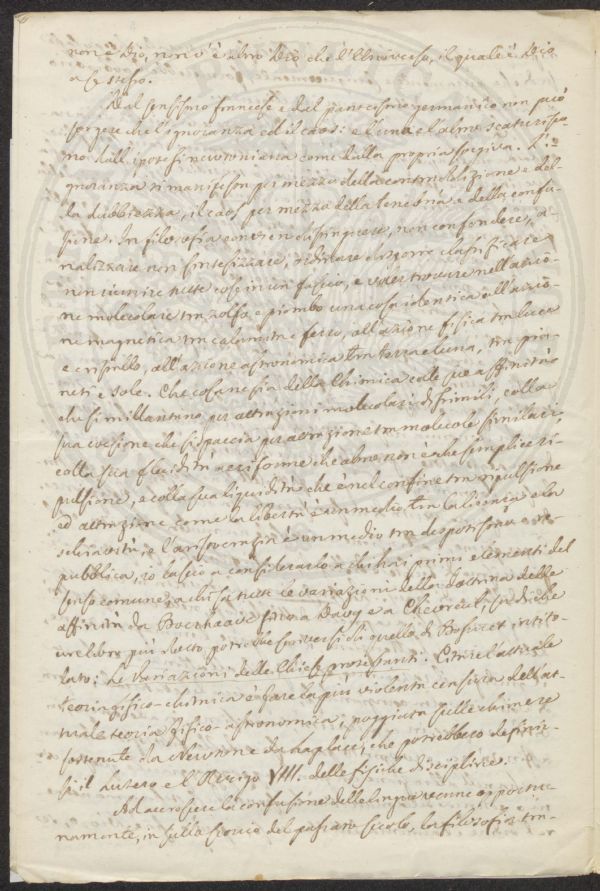 non è Dio, non v'è altro Dio che l'Universo, il quale è Dio
a se stesso.
Dal sensismo francese e dal panteismo germanico non può
sorgere che l'ignoranza ed il caos: e l'una e l'altro scaturisco-
no dall'ipotesi newtoniana come dalla propria sorgiva. L'i-
gnoranza si manifesta per mezzo della contraddizione e del-
la dubbiezza, il caos per mezzo della tenebria e della confu-
sione. In filosofia convien distinguere, non confondere, a-
nalizzare non sintesizzare, ordinare disporre classificare
non riunire tutte cose in un fascio, e voler trovare nell'azio-
ne molecolare tra zolfo e piombo una cosa identica all'azio-
ne magnetica tra calamita e ferro, all'azione fisica tra luce
e cristallo, all'azione astronomica tra terra e luna, tra pia-
neti e sole. Che cosa ne sia della Chimica colle sue affinità
che si millantano per attrazioni molecolari di simili, colla
sua coesione che si spaccia per attrazione tra molecole similari,
colla sua fluidità aeriforme che altro non è che semplice ri-
pulsione, e colla sua liquidità che è nel confine tra ripulsione
ed attrazione come la libertà è un medio tra la licenza e la
schiavitù, e l'aristocrazia è un medio tra despotismo e re-
pubblica, io lascio a considerarlo a chi ha i primi elementi del
senso comune, a chi sa tutte le variazioni della dottrina delle
affinità da Boerhaave fino a Davy e a Chevreul, su di che
un libro più dotto potrebbe scriversi di quello di Bossuet intito-
lato: Le Variazioni delle Chiese protestanti. Citare l'attuale
teoria fisico-chimica è fare la più violenta censura dell'at-
tuale teoria fisico-astronomica, poggiata sulle chimere
sostenute da Newton e da Laplace, che potrebbero definir-
si il Lutero e l'Arrigo VIII. delle fisiche discipline.
Ad accrescere la confusione delle lingue venne opportu-
namente, in sullo scorcio del passato secolo, la filosofia tra-